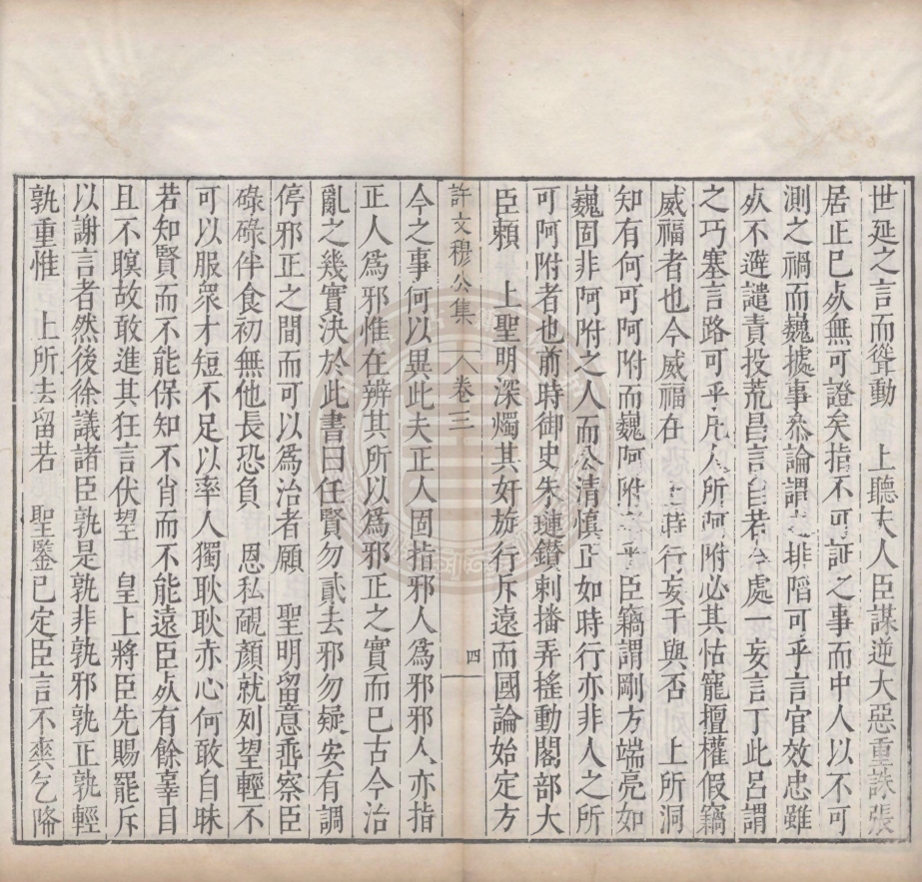 世延之言而聳動　上聽夫人臣謀逆大惡重誅張
居正已死無可證矣指不可証之事而中人以不可
測之禍而巍據事叅論謂之排陷可乎言官效忠雖
死不避譴責投荒昌言自若今處一妄言丁此呂謂
之巧塞言路可乎凡人所阿附必其怙寵擅權假竊
威福者也今威福在　上時行妄干與否　上所洞
知有何可阿附而巍阿附之乎臣竊謂剛方端亮如
巍固非阿附之人而公清慎正如時行亦非人之所
可阿附者也前時御史朱璉鑽刺播弄搖動閣部大
臣賴　上聖明深燭其奸旋行斥遠而國論始定方
許文穆公集　卷三　四
今之事何以異此夫正人固指邪人爲邪邪人亦指
正人爲邪惟在辨其所以爲邪正之實而已古今治
亂之幾實決於此書曰任賢勿貳去邪勿疑安有調
停邪正之間而可以爲治者願　聖明留意臿察臣
碌碌伴食初無他長恐負　恩私靦顏就列望輕不
可以服衆才短不足以率人獨耿耿赤心何敢自昧
若知賢而不能保知不肖而不能遠臣死有餘辜目
且不瞑故敢進其狂言伏望　皇上將臣先賜罷斥
以謝言者然後徐議諸臣孰是孰非孰邪孰正孰輕
孰重惟　上所去留若　聖鑒已定臣言不爽乞降